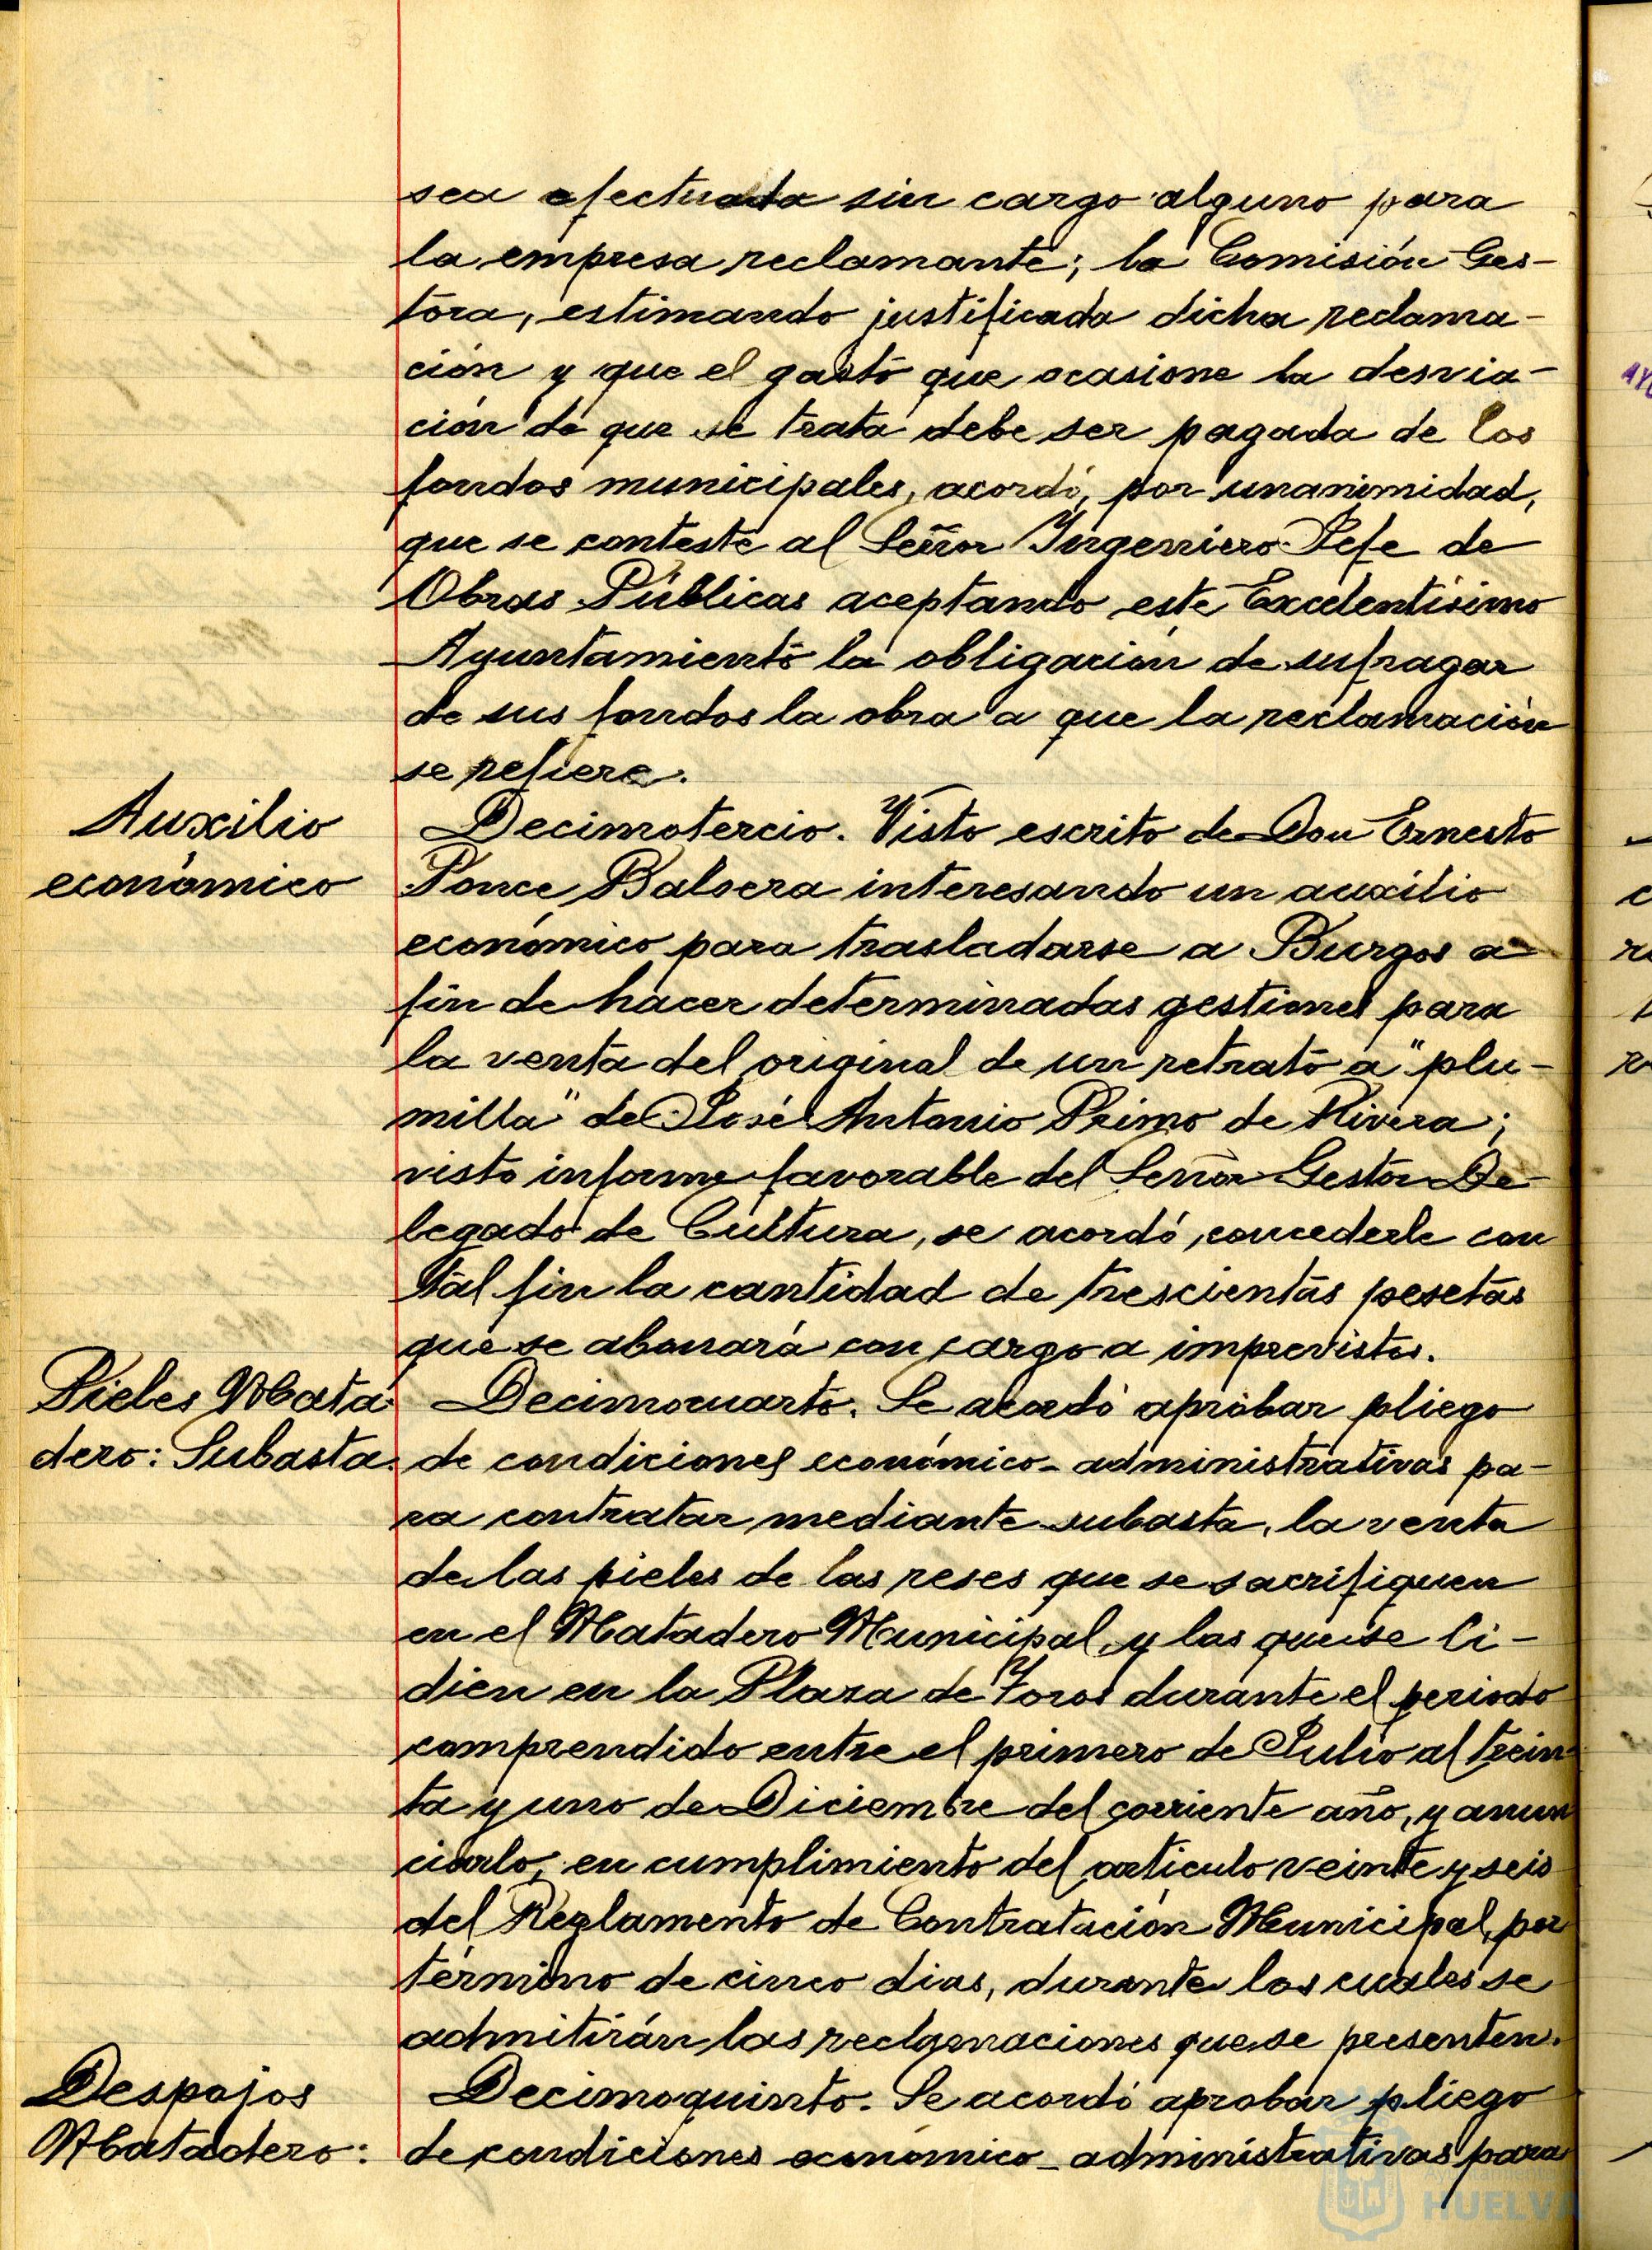 sea efectuada sin cargo alguno para
la empresa reclamante; la Comisión Ges-
tora, estimando justificada dicha reclama-
ción y que el gasto que ocasione la desvia-
ción de que se trata debe ser pagada de los
fondos municipales, acordó, por unanimidad,
que se conteste al Señor Ingeniero Jefe de
Obras Públicas aceptando este Excelentísimo
Ayuntamiento la obligación de sufragar
de sus fondos la obra a que la reclamación
se refiere.
Auxilio
económico
Decimotercio. Visto escrito de Don Ernesto
Ponce Balsera interesando un auxilio
económico para trasladarse a Burgos a
fin de hacer determinadas gestiones para
la venta del original de un retrato a "plu-
milla" de José Antonio Primo de Rivera;
visto informe favorable del Señor Gestor De-
legado de Cultura, se acordó, concederle con
tal fin la cantidad de trescientas pesetas
que se abonará con cargo a imprevistos.
Pieles Mata-
dero: Subasta.
Decimocuarto. Se acordó aprobar pliego
de condiciones económico-administrativas pa-
ra contratar mediante subasta, la venta
de las pieles de las reses que se sacrifiquen
en el Matadero Municipal, y las que se li-
dien en la Plaza de Toros durante el periodo
comprendido entre el primero de Julio al trein-
ta y uno de Diciembre del corriente año, y anun
ciarlo, en cumplimiento del artículo veinte y seis
del Reglamento de Contratación Municipal, por
término de cinco dias, durante los cuales se
admitirán las reclamaciones que se presenten.
Despojos
Matadero:
Decimoquinto. Se acordó aprobar pliego
de condiciones económico-administrativas para
Ayuntamiento
HUELVA